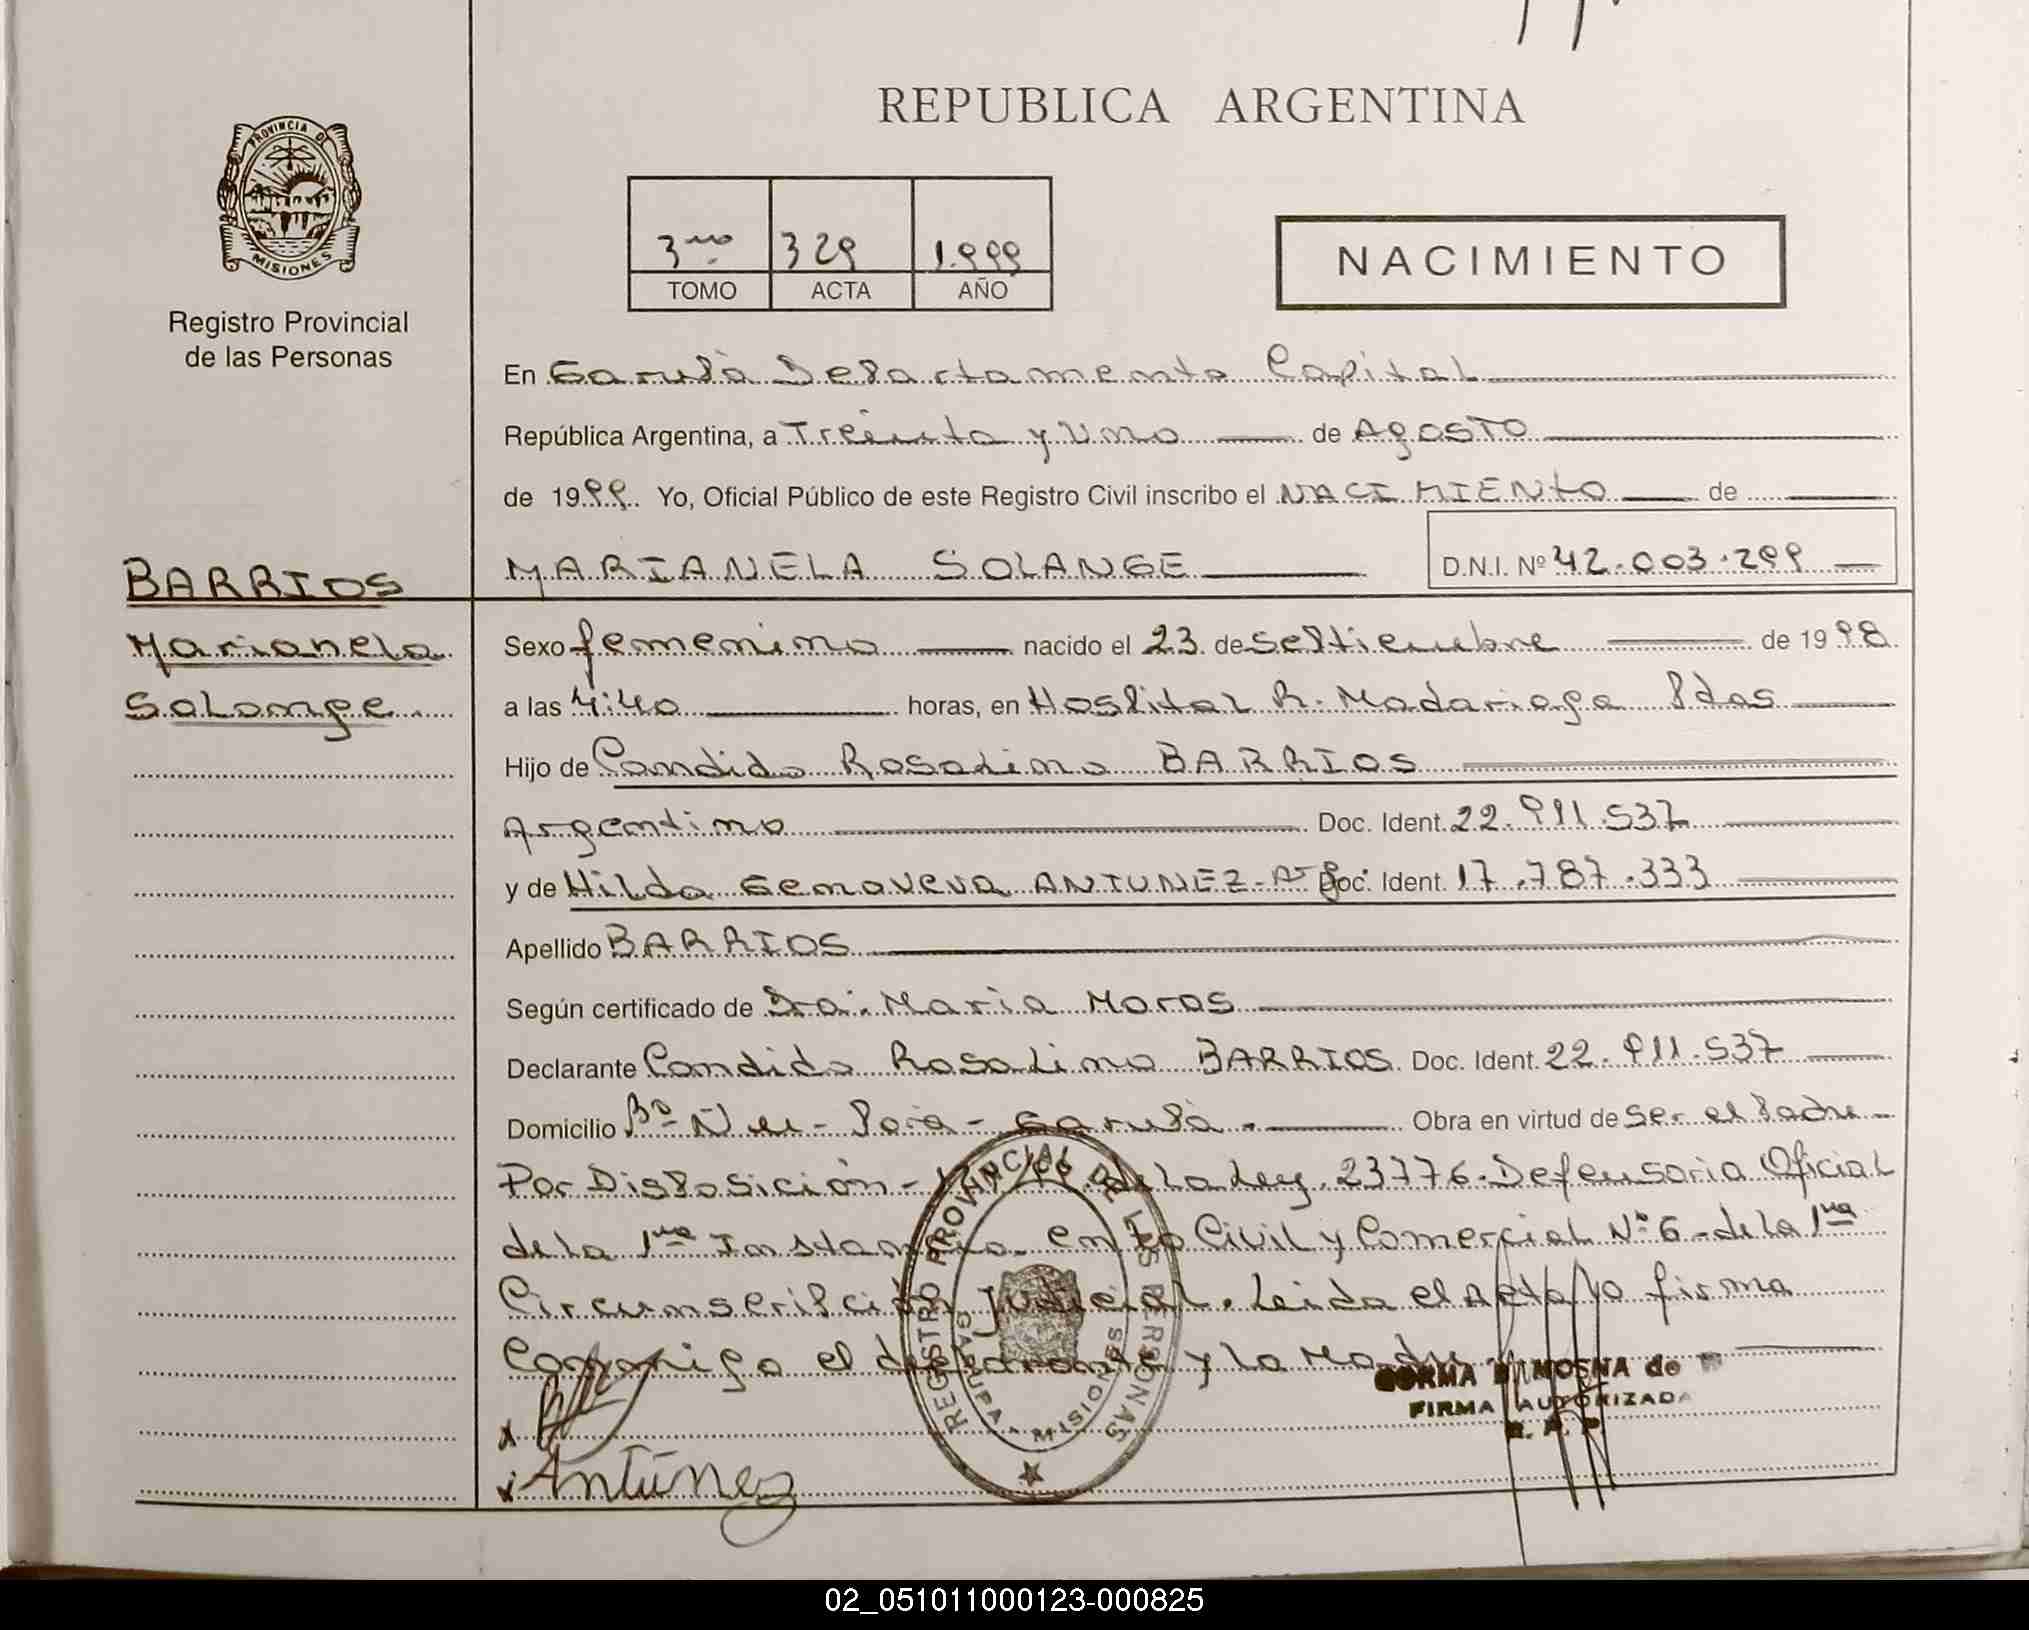 REPUBLICA ARGENTINA
PROVINCIA DE
MISIONES
Registro Provincial
de las Personas
3ro 329 1.999
TOMO ACTA AÑO
NACIMIENTO
En Garupá Departamento Capital
República Argentina, a Treinta y Uno de Agosto
de 1999. Yo, Oficial Público de este Registro Civil inscribo el NACIMIENTO de
MARIANELA SOLANGE D.N.I. Nº 42.003.299
BARRIOS
Marianela
Solange
Sexo femenino nacido el 23 de Septiembre de 1998
a las 4:40 horas, en Hospital R. Madariaga Pdas
Hijo de Candido Rosalino BARRIOS
Argentino Doc. Ident. 22.911.537
y de Hilda Genoveva ANTUNEZ - Arg. Doc. Ident. 17.787.333
Apellido BARRIOS
Según certificado de Dra. Maria Moras
Declarante Candido Rosalino BARRIOS Doc. Ident. 22.911.537
Domicilio Bº Ñu - Porá - Garupá - Obra en virtud de ser el Padre
Por Disposición - de la Ley 23776 - Defensoria Oficial
de la 1ra Instancia en lo Civil y Comercial Nº 6 - de la 1ra
Circunscripción Judicial. Leida el Acta la firma
Conmigo el declarante y la Madre
NORMA DALMOSNA de
FIRMA AUTORIZADA
R. P. P.
x
x Antúnez
REGISTRO PROVINCIAL DE LAS PERSONAS
GARUPA - MISIONES
02_051011000123-000825